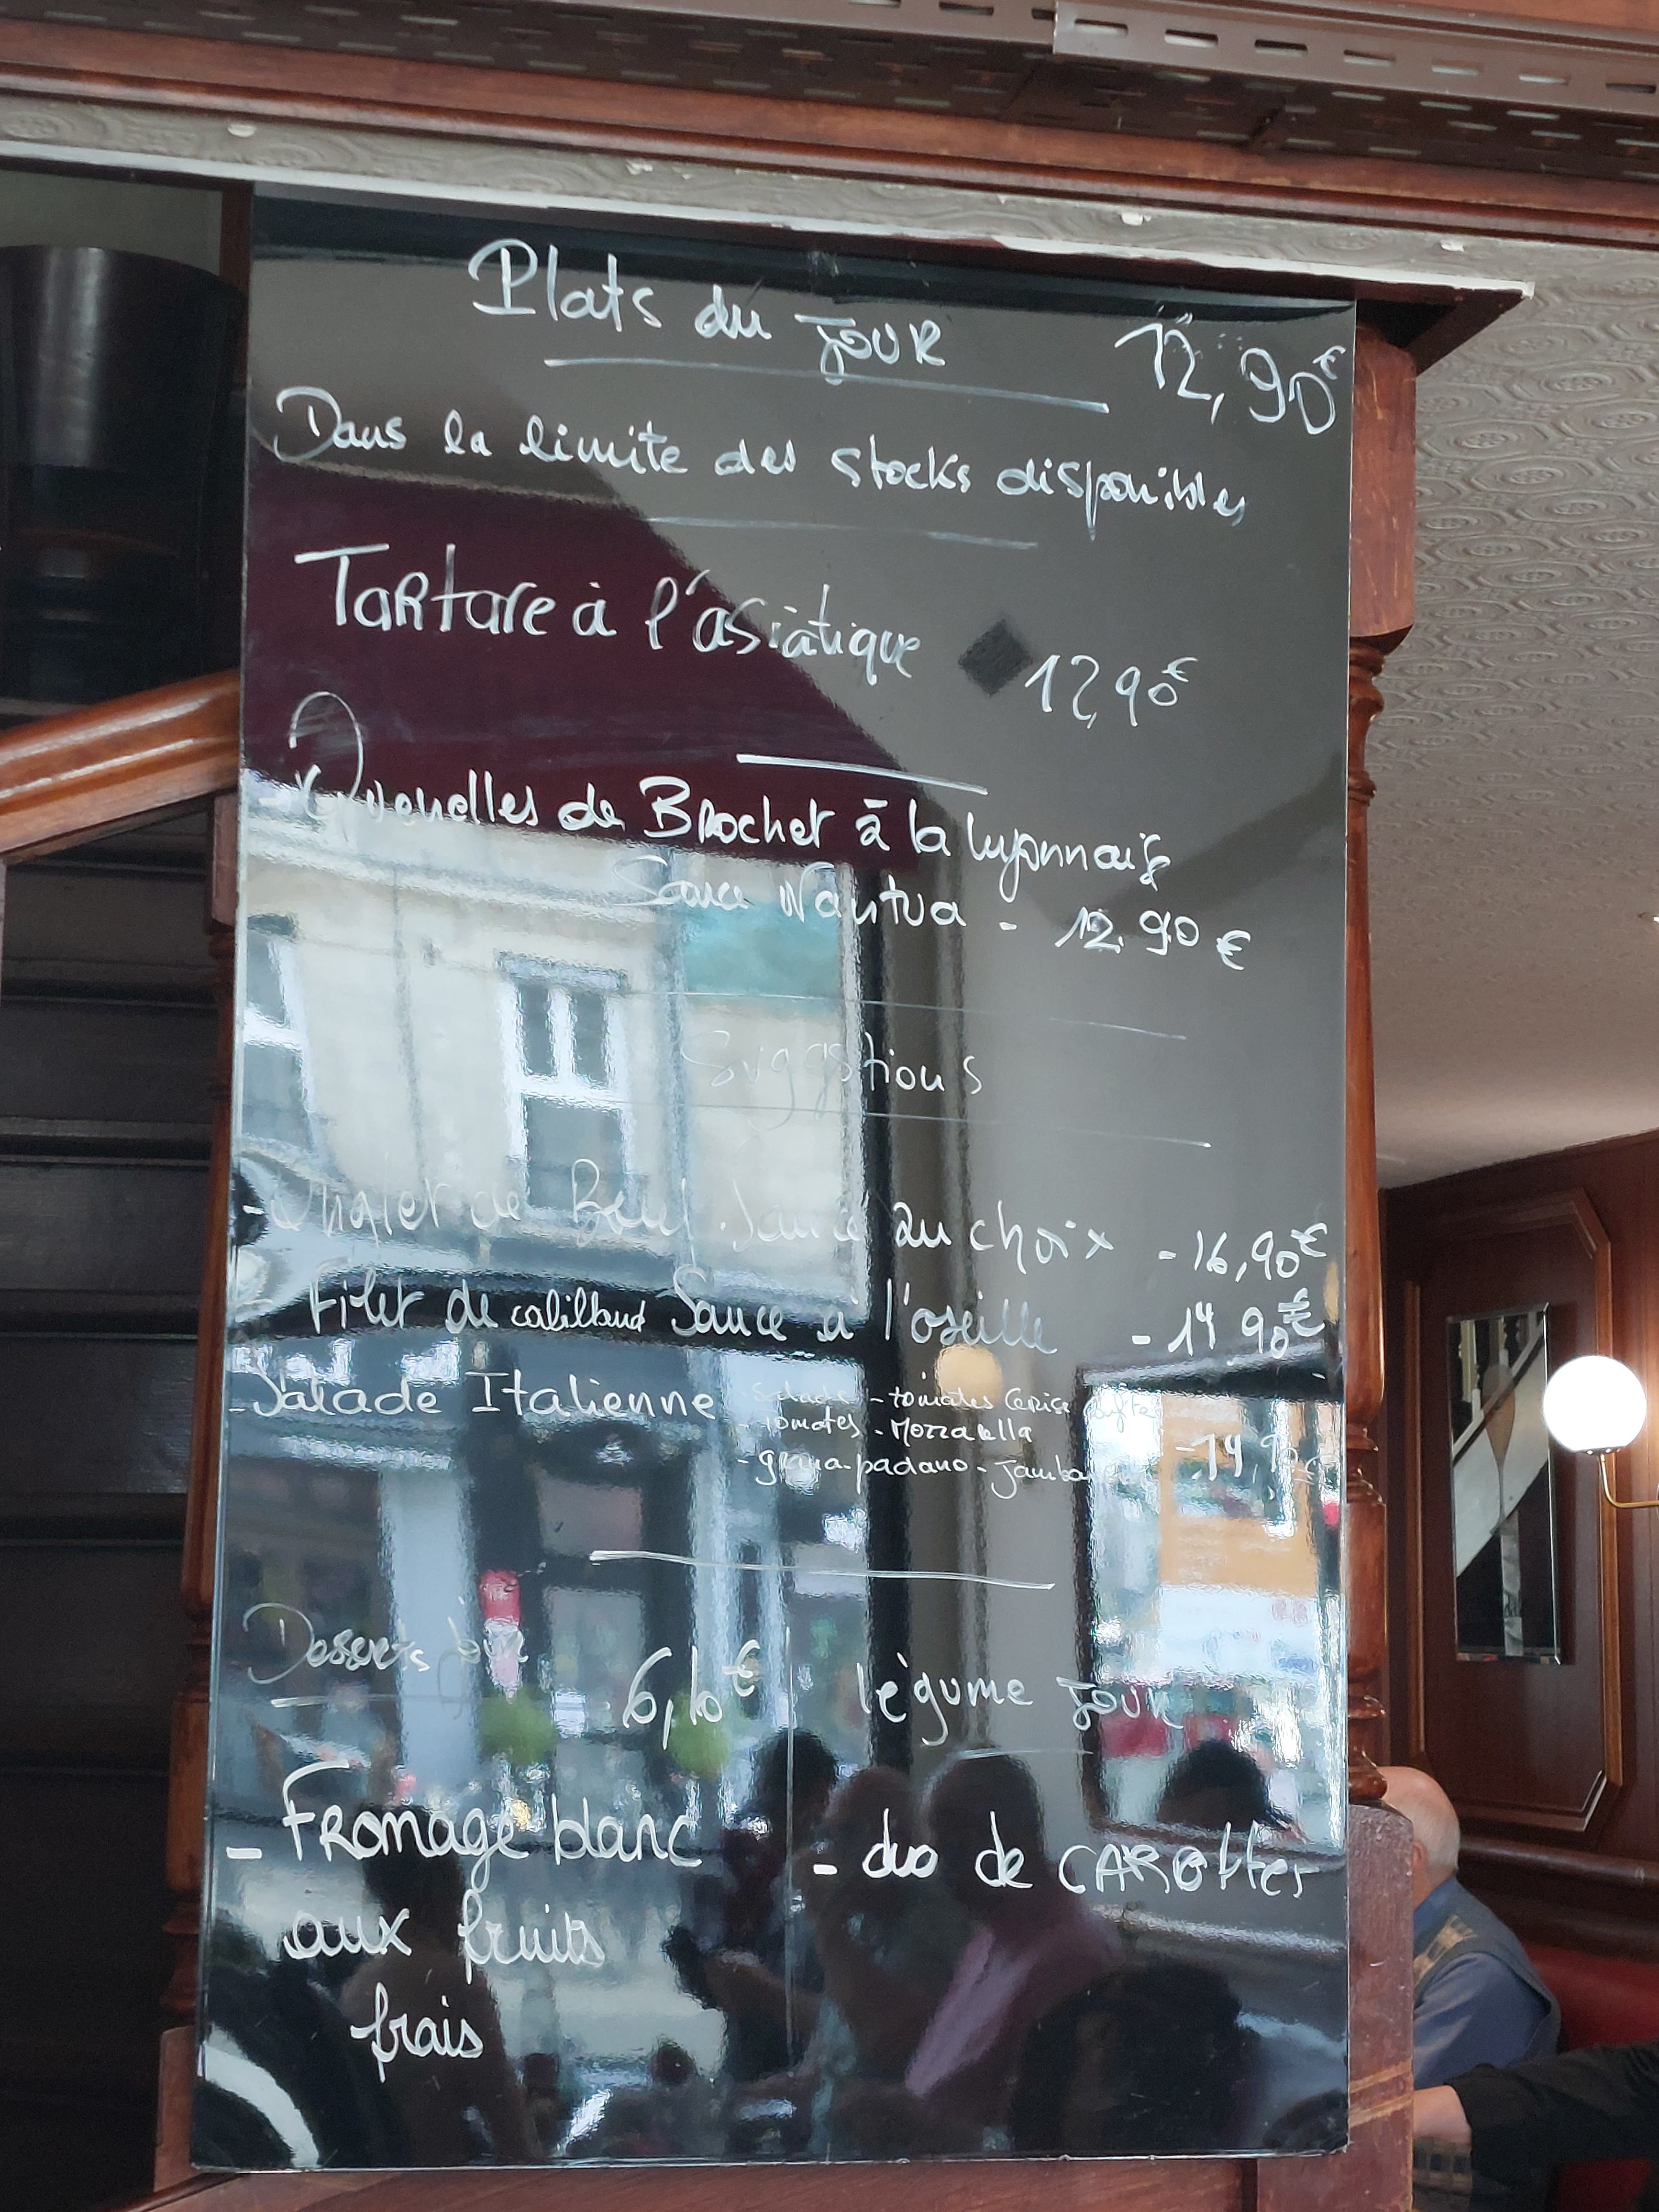 Plats du jour 12,90€
Dans la limite des stocks disponibles
Tartare à l'asiatique 12,90€
Quenelles de Brochet à la lyonnaise
Sauce Nantua - 12.90€
Suggestions
- Onglet de Boeuf Sauce au choix - 16,90€
- Filet de cabillaud Sauce à l'oseille - 14,90€
- Salade Italienne - Salade - tomates cerise
- tomates - Mozzarella
- grana-padano - jambon - 14,90€
Desserts jour 6,10€
légume jour
- Fromage blanc
aux fruits
frais
- duo de CAROTTES